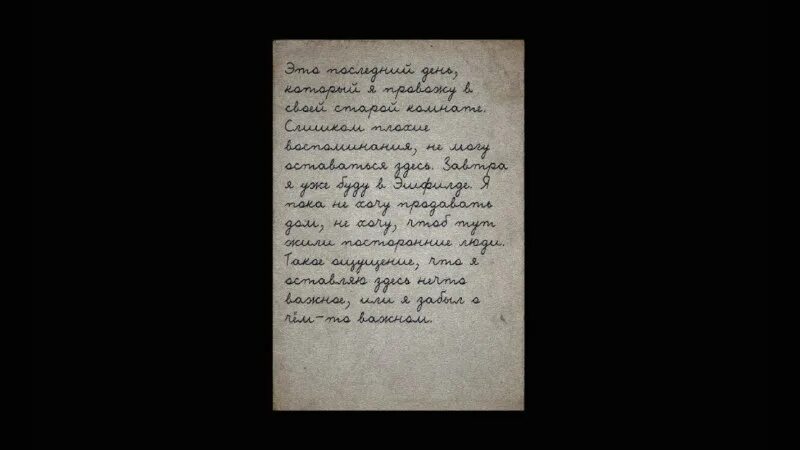 Это последний день,
который я провожу в
своей старой комнате.
Слишком плохие
воспоминания, не могу
оставаться здесь. Завтра
я уже буду в Эшфилде. Я
пока не хочу продавать
дом, не хочу, чтоб тут
жили посторонние люди.
Такое ощущение, что я
оставляю здесь нечто
важное, или я забыл о
чём-то важном.